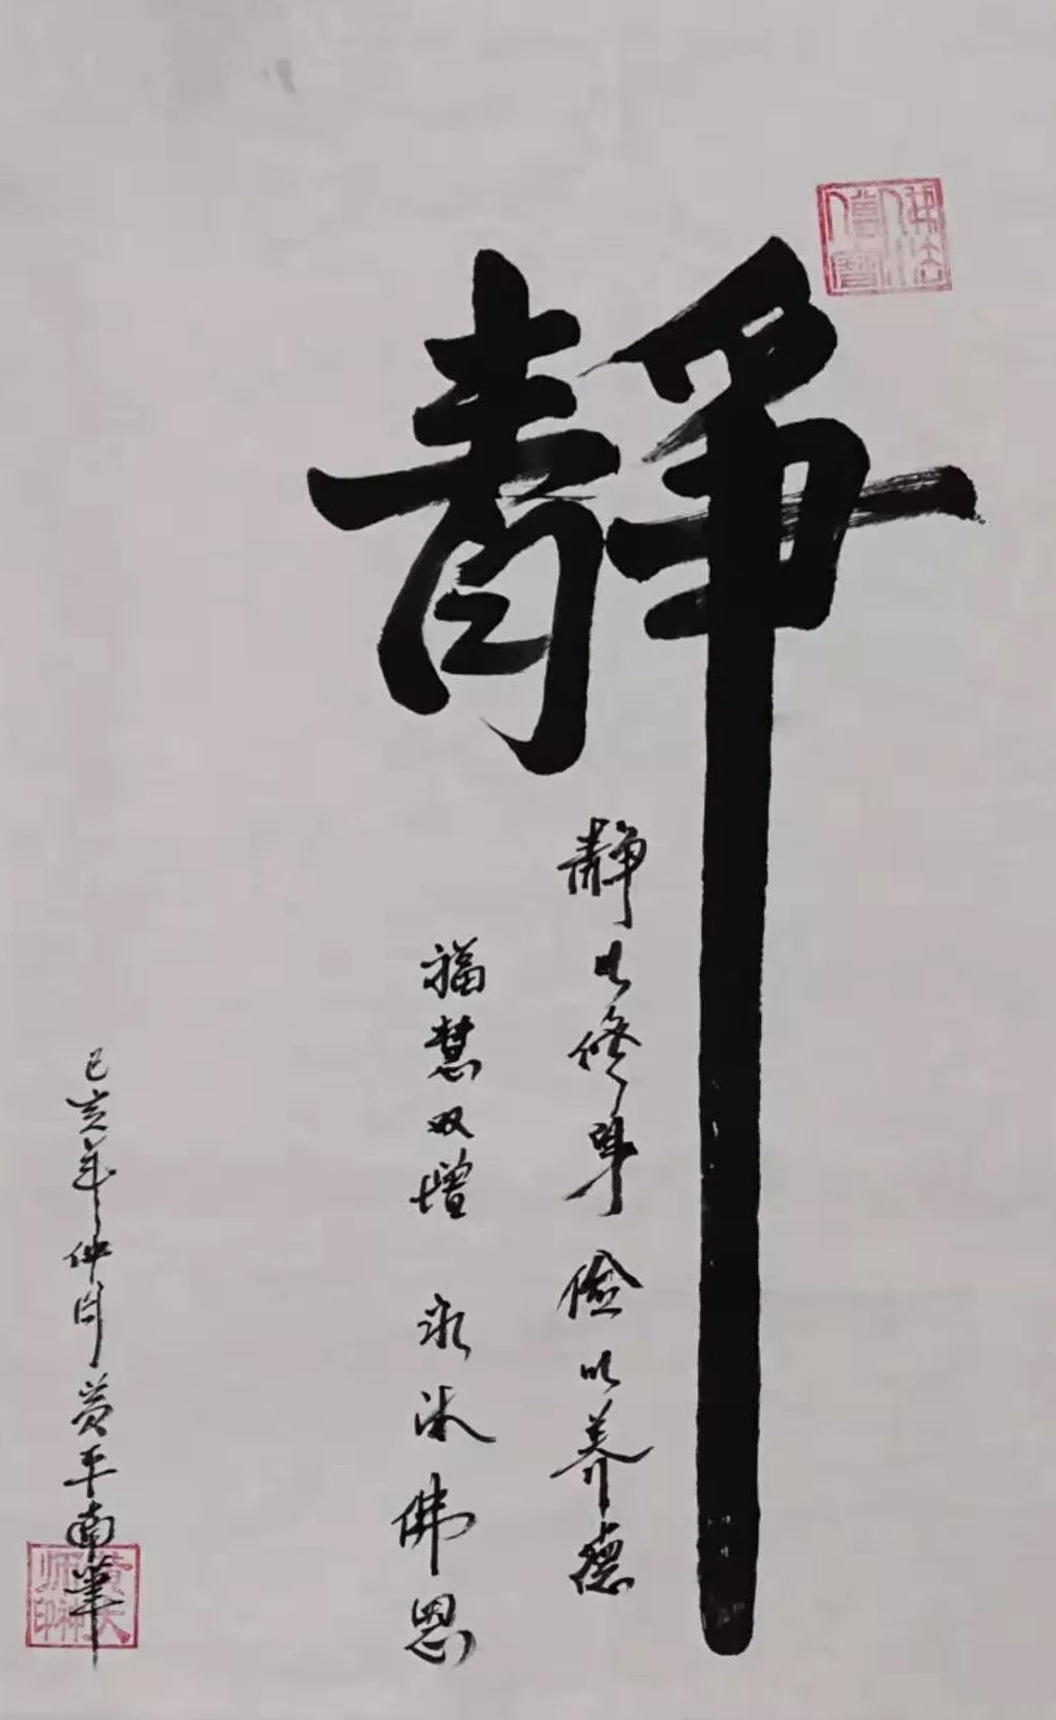 靜
静以修身 俭以养德
福慧双增 永沐佛恩
己亥年仲月黄平南筆